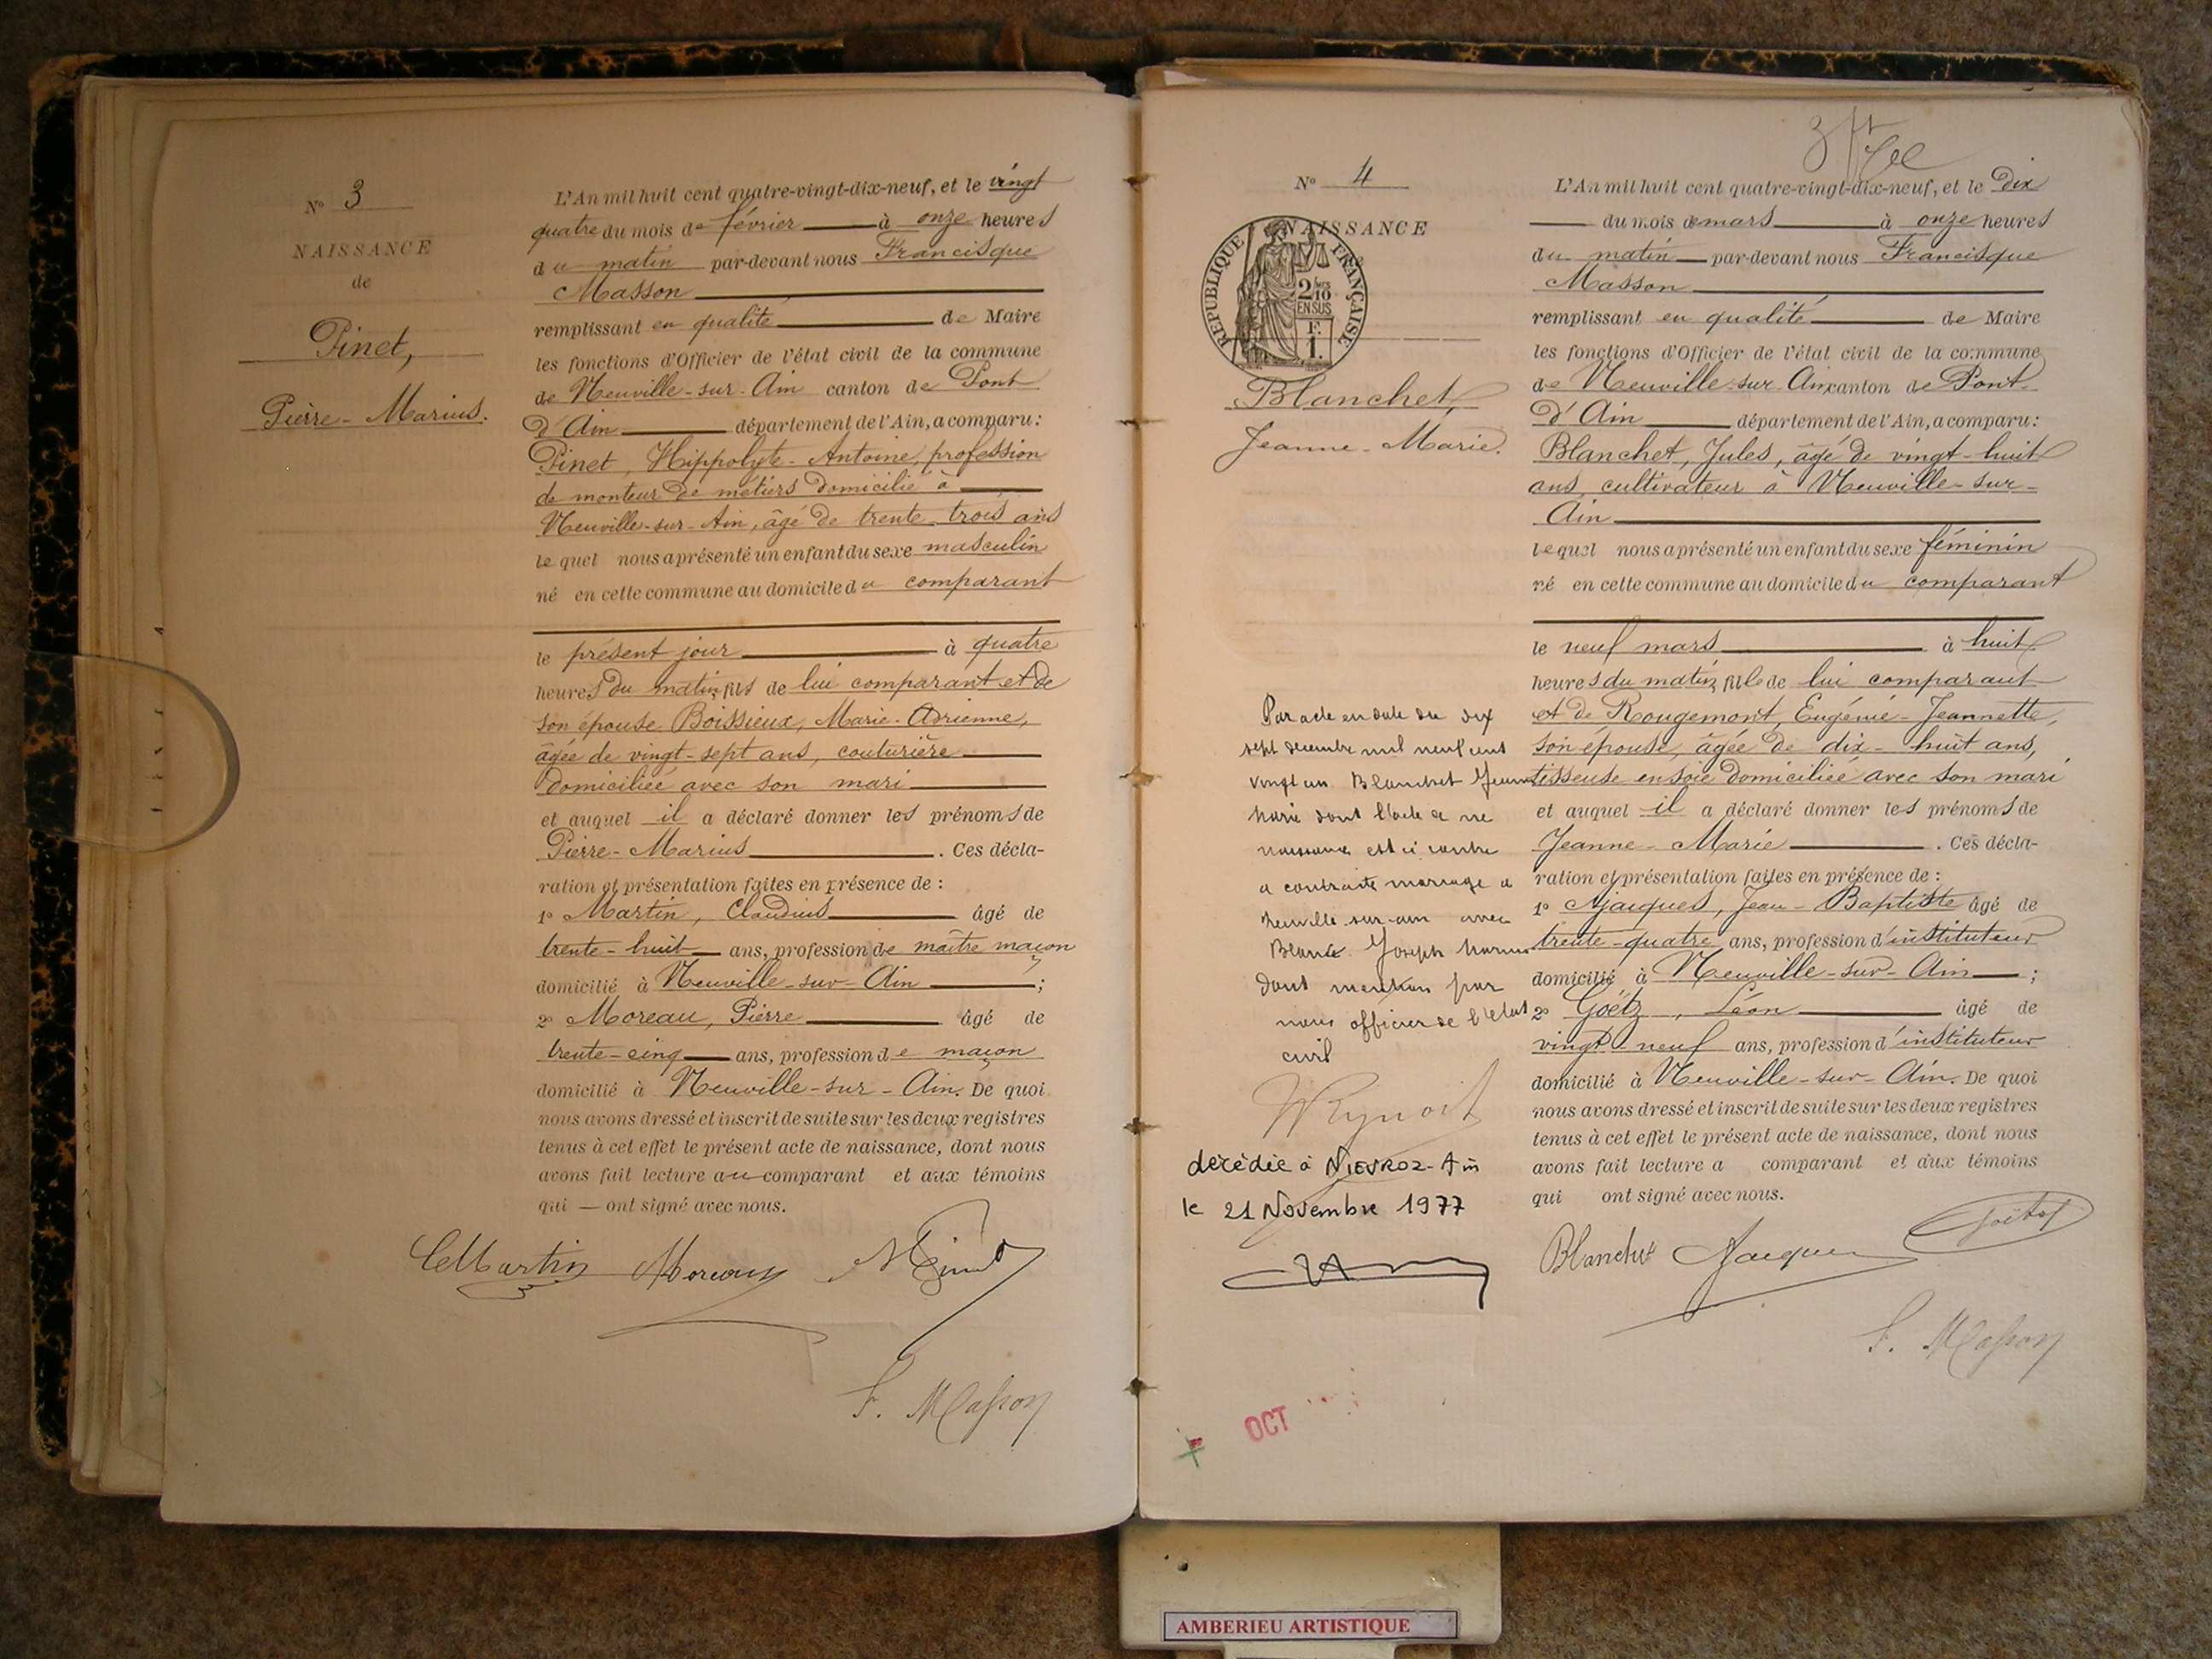 N° 3
NAISSANCE
de
Pinet,
Pierre-Marius.
L'An mil huit cent quatre-vingt-dix-neuf, et le vingt
quatre du mois de février à onze heures
du matin par-devant nous Francisque
Masson
remplissant en qualité de Maire
les fonctions d'Officier de l'état civil de la commune
de Neuville-sur-Ain canton de Pont
d'Ain département de l'Ain, a comparu:
Pinet, Hippolyte-Antoine, profession
de monteur de métiers domicilié à
Neuville-sur-Ain, âgé de trente trois ans
lequel nous a présenté un enfant du sexe masculin
né en cette commune au domicile du comparant
le présent jour à quatre
heures du matin, fils de lui comparant et de
son épouse Boissieux, Marie-Adrienne,
âgée de vingt-sept ans, couturière
domiciliée avec son mari
et auquel il a déclaré donner les prénoms de
Pierre-Marius. Ces décla-
ration et présentation faites en présence de :
1° Martin, Claudius âgé de
trente-huit ans, profession de maître maçon
domicilié à Neuville-sur-Ain ;
2° Moreau, Pierre âgé de
trente-cinq ans, profession de maçon
domicilié à Neuville-sur-Ain. De quoi
nous avons dressé et inscrit de suite sur les deux registres
tenus à cet effet le présent acte de naissance, dont nous
avons fait lecture au comparant et aux témoins
qui — ont signé avec nous.
Martin Moreau Pinet
F. Masson
N° 4
NAISSANCE
REPUBLIQUE FRANÇAISE
2/10
EN SUS
F.
1.
Blanchet,
Jeanne-Marie.
Par acte en date du dix
sept decembre mil neuf cent
vingt un Blanchet Jeanne
Marie dont l'acte de
naissance est ci contre
a contracté mariage a
Neuville-sur-ain avec
Joseph Marius
dont mention par
nous officier de l'etat
civil
décédée à NIEVROZ-Ain
le 21 Novembre 1977
OCT
L'An mil huit cent quatre-vingt-dix-neuf, et le Dix
du mois de mars à onze heures
du matin par-devant nous Francisque
Masson
remplissant en qualité de Maire
les fonctions d'Officier de l'état civil de la commune
de Neuville-sur-Ain canton de Pont-
d'Ain département de l'Ain, a comparu:
Blanchet, Jules, âgé de vingt-huit
ans, cultivateur à Neuville-sur-
Ain
lequel nous a présenté un enfant du sexe féminin
né en cette commune au domicile du comparant
le neuf mars à huit
heures du matin, fille de lui comparant
et de Rougemont, Eugénie-Jeannette,
son épouse, âgée de dix-huit ans,
tisseuse en soie domiciliée avec son mari
et auquel il a déclaré donner les prénoms de
Jeanne-Marie. Ces décla-
ration et présentation faites en présence de :
1° Jacques, Jean-Baptiste âgé de
trente-quatre ans, profession d'instituteur
domicilié à Neuville-sur-Ain ;
2° Goëtz, Léon âgé de
vingt-neuf ans, profession d'instituteur
domicilié à Neuville-sur-Ain. De quoi
nous avons dressé et inscrit de suite sur les deux registres
tenus à cet effet le présent acte de naissance, dont nous
avons fait lecture a comparant et aux témoins
qui ont signé avec nous.
Blanchet Jacques Goëtz
F. Masson
AMBERIEU ARTISTIQUE